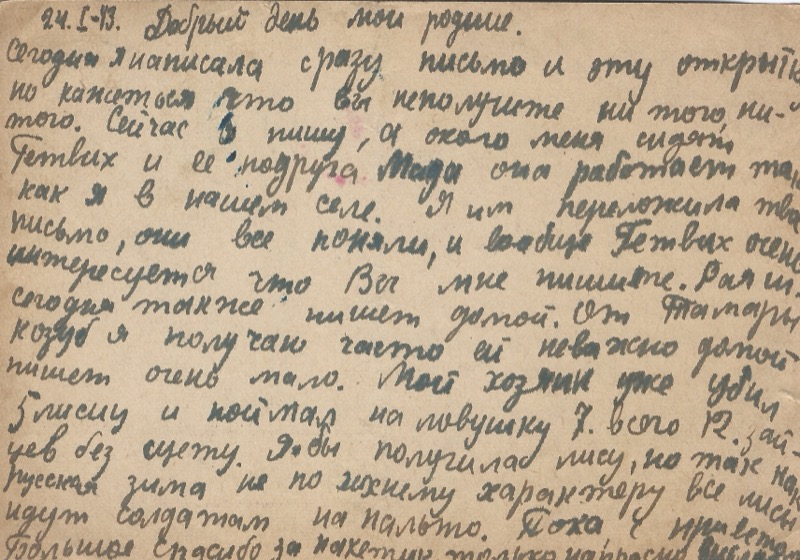 24. I-43. Добрый день мои родные.
Сегодня я написала сразу письмо и эту открытк
но кажеться что вы неполучите ни того, ни-
того. Сейчас пишу, а окого меня сидят
Гетвих и ее подруга Мада она работает так
как я в нашем селе. Я им переложила тво
письмо, они все поняли, и вообще Гетвих очень
интересуется что Вы мне пишите. Рая
сегодня также пишет домой. От Тамары
козуб я получаю часто ей неважно домой
пишет очень мало. Мой хозяин уже убил
5 лисиц и поймал на ловушку 7. всего 12. зай-
цев без сщету. Я бы получила лису, но так как
русская зима не по ихнему характеру все лисы
идут солдатам на пальто. Пока с приветом
Большое спасибо за пакетик только напрасно